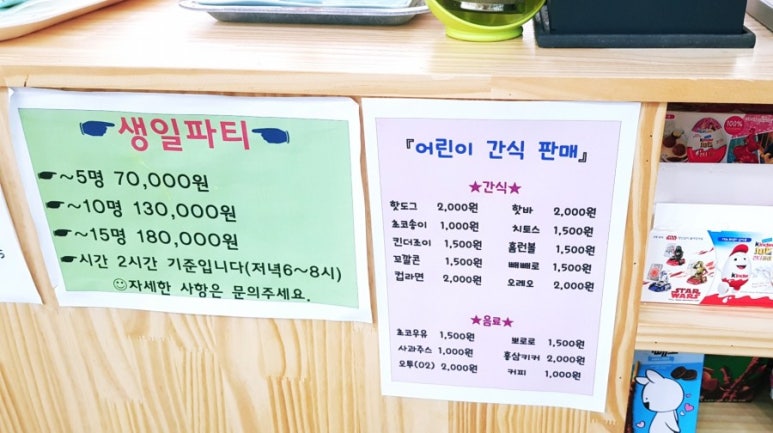 생일파티
~5명 70,000원
~10명 130,000원
~15명 180,000원
시간 2시간 기준입니다(저녁6~8시)
자세한 사항은 문의주세요.
『어린이 간식 판매』
★간식★
핫도그 2,000원 핫바 2,000원
초코송이 1,000원 치토스 1,500원
킨더조이 1,500원 홈런볼 1,500원
꼬깔콘 1,500원 빼빼로 1,500원
컵라면 2,000원 오레오 2,000원
★음료★
초코우유 1,500원 뽀로로 1,500원
사과주스 1,000원 홍삼키커 2,000원
오투(O2) 2,000원 커피 1,000원
100%
Kinder
STAR
WARS
Kinder